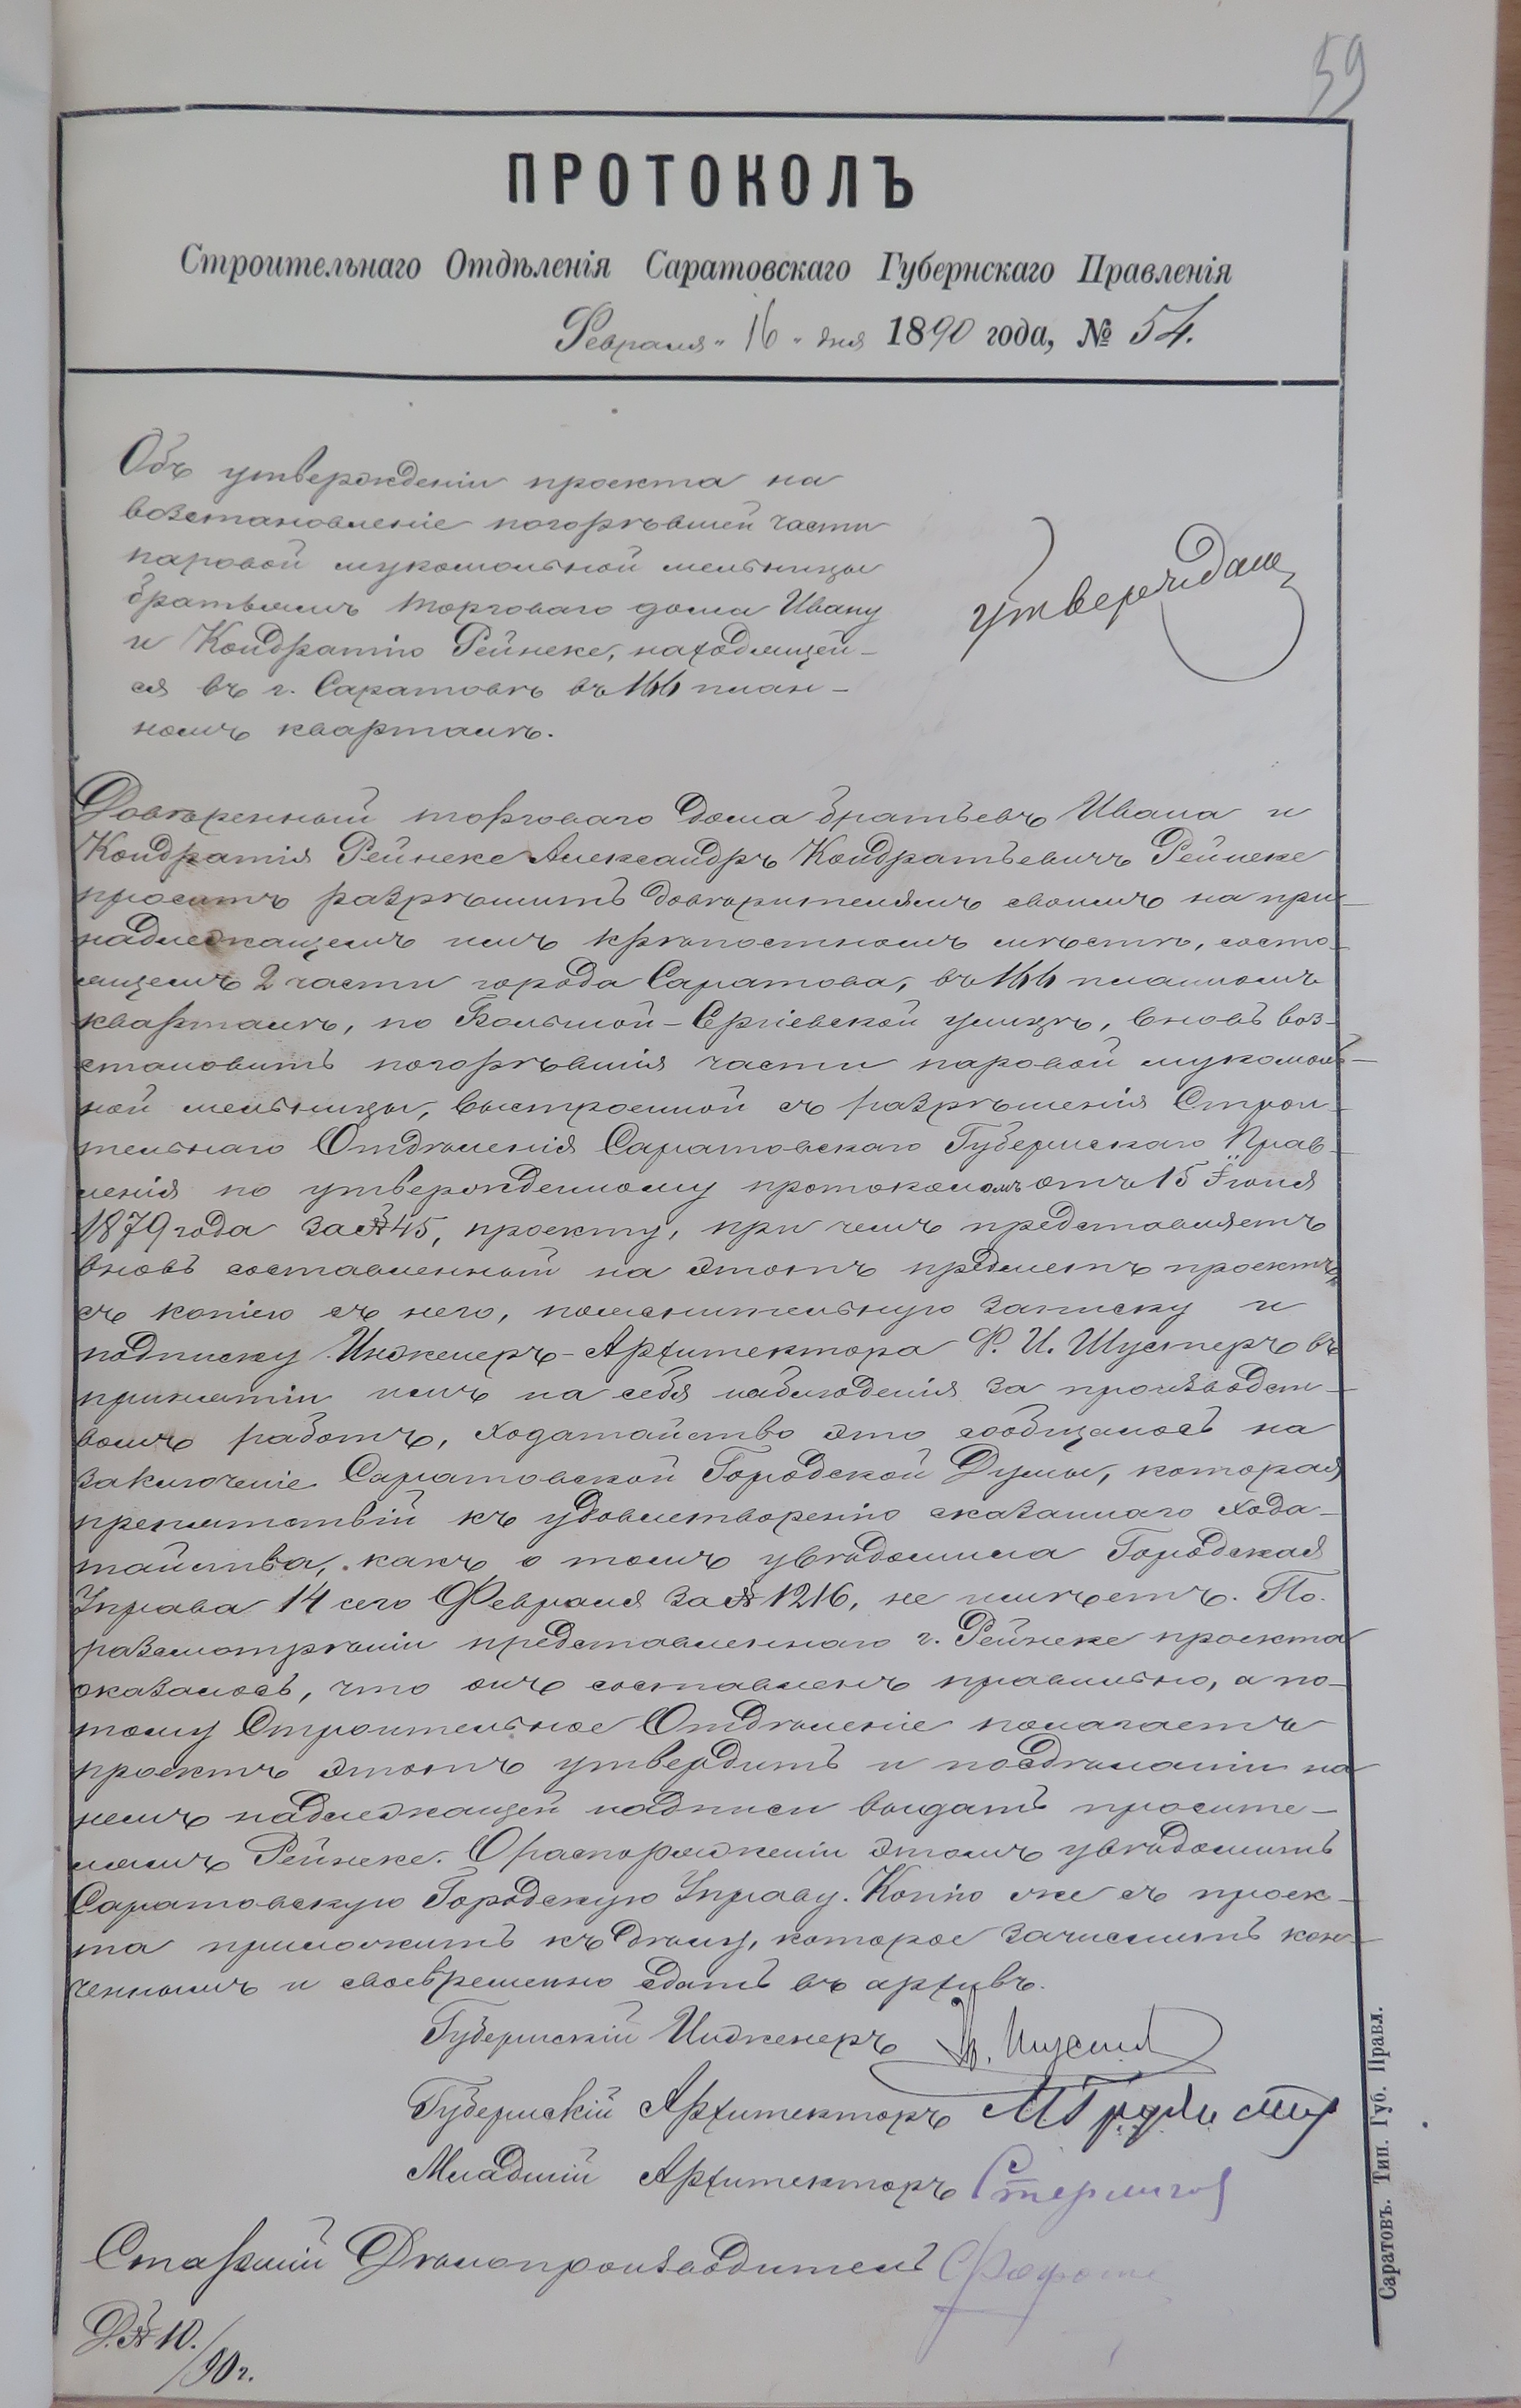 59
ПРОТОКОЛЪ
Строительнаго Отдѣленія Саратовскаго Губернскаго Правленія
Февраля „ 16 „ дня 1890 года, № 54.
Объ утвержденіи проекта на
возстановленіе погорѣвшей части
паровой мукомольной мельницы
братьямъ торговаго дома Ивану
и Кондратію Рейнеке, находящей-
ся въ г. Саратовѣ въ 166 план-
номъ кварталѣ.
Утверждаю
Довѣренный торговаго дома братьевъ Ивана и
Кондратія Рейнеке Александръ Кондратьевичъ Рейнеке
проситъ разрѣшить довѣрителямъ своимъ на при-
надлежащемъ имъ крѣпостномъ мѣстѣ, состо-
ящемъ 2 части города Саратова, въ 166 планномъ
кварталѣ, по Большой-Сергіевской улицѣ, вновь воз-
становить погорѣвшія части паровой мукомоль-
ной мельницы, выстроенной съ разрѣшенія Строи-
тельнаго Отдѣленія Саратовскаго Губернскаго Прав-
ленія по утвержденному протоколомъ отъ 15 Іюня
1879 года за № 45, проекту, при чемъ представляетъ
вновь составленный на этотъ предметъ проектъ
съ копіею съ него, пояснительную записку и
подписку Инженеръ-Архитектора Ф. И. Шустеръ въ
принятіи имъ на себя наблюденія за производст-
вомъ работъ, ходатайство это сообщалось на
заключеніе Саратовской Городской Думы, которая
препятствій къ удовлетворенію сказаннаго хода-
тайства, какъ о томъ увѣдомила Городская
Управа 14 сего Февраля за № 1216, не имѣетъ. По
разсмотрѣніи представленнаго г. Рейнеке проекта
оказалось, что онъ составленъ правильно, а по-
тому Строительное Отдѣленіе полагаетъ
проектъ этотъ утвердить и по сдѣланіи на
немъ надлежащей надписи выдать просите-
лямъ Рейнеке. О распоряженіи этомъ увѣдомить
Саратовскую Городскую Управу. Копію же съ проек-
та приложить къ дѣлу, которое зачислить кон-
ченнымъ и своевременно сдать въ архивъ.
Губернскій Инженеръ
Губернскій Архитекторъ М Грудистир
Младшій Архитекторъ Стерлигов
Старшій Дѣлопроизводитель
Д. № 10./90 г.
Саратовъ. Тип. Губ. Правл.